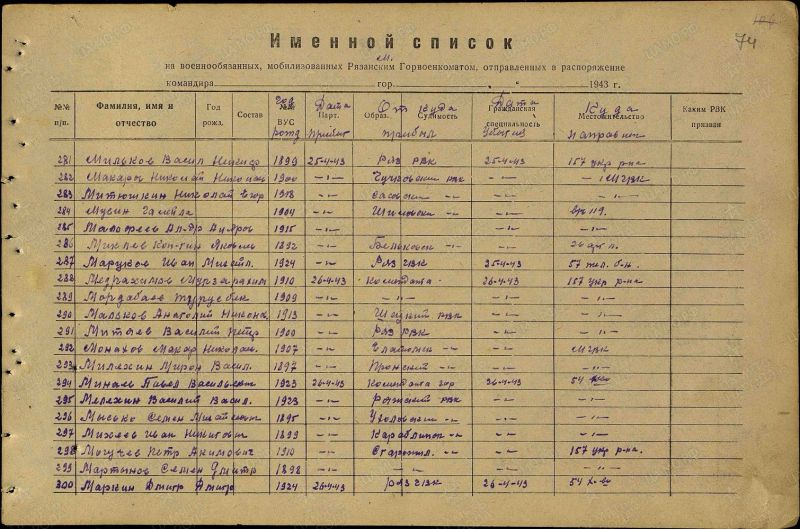 74
Именной список
на военнообязанных, мобилизованных Рязанским Горвоенкоматом, отправленных в распоряжение
командира гор. " " 1943 г.
№№ п/п. Фамилия, имя и отчество Год рожд. Состав Год ВУС рожд Дата Парт. прибыт Откуда Образ. Судимость прибыл Дата Гражданская специальность убытия Куда Местожительство направлен Каким РВК призван
281 Мильков Васил 1899 25-4-43 Ряз РВК 25-4-43 157 укр р-на
282 Макаров Николай Николаев 1900 -"- Чучковский РВК -"- МГВК
283 Митюшкин Николай Егор 1918 -"- Сасовски -"- -"- -"-
284 Мусин 1904 -"- Шиловски -"- -"-
285 1915 -"- -"- -"-
286 Михлев Кон-тин Яковль 1892 -"- Бельковск -"- -"-
287 Маруков Иван Михайл. 1924 -"- Ряз ГВК 25-4-43 57 жел. б-н.
288 Медрахимов Мурзарахим 1910 26-4-43 Комендата 26-4-43 157 укр р-на
289 Мордабаев Турусбек 1909 -"- -"- -"- -"-
290 Мальков Анатолий Никона 1913 -"- РВК -"- -"-
291 Митяев Василий Петр 1900 -"- Ряз РВК -"- -"-
292 Монахов Макар Николаев. 1907 -"- Елатомск -"- -"- МГВК
293 Милехин Мирон Васил. 1897 -"- Пронский -"- -"- -"-
294 Минаев Павел Васильевич 1923 26-4-43 Коменданта гор 26-4-43 54
295 Мелехин Василий Васил. 1923 -"- Ряжский РВК -"- -"-
296 Мысько Семен Михайлович 1895 -"- Ухоловский -"- -"- -"-
297 Михеев Иван Никитович 1899 -"- Кораблинск -"- -"- -"-
298 Могучев Петр Акимович 1910 -"- Старожил. -"- -"- 157 укр р-на.
299 Мартынов Семен Дмитр 1898 -"- -"- -"- -"-
300 Маркин Дмитр Дмитр 1924 26-4-43 Ряз ГВК 26-4-43 54